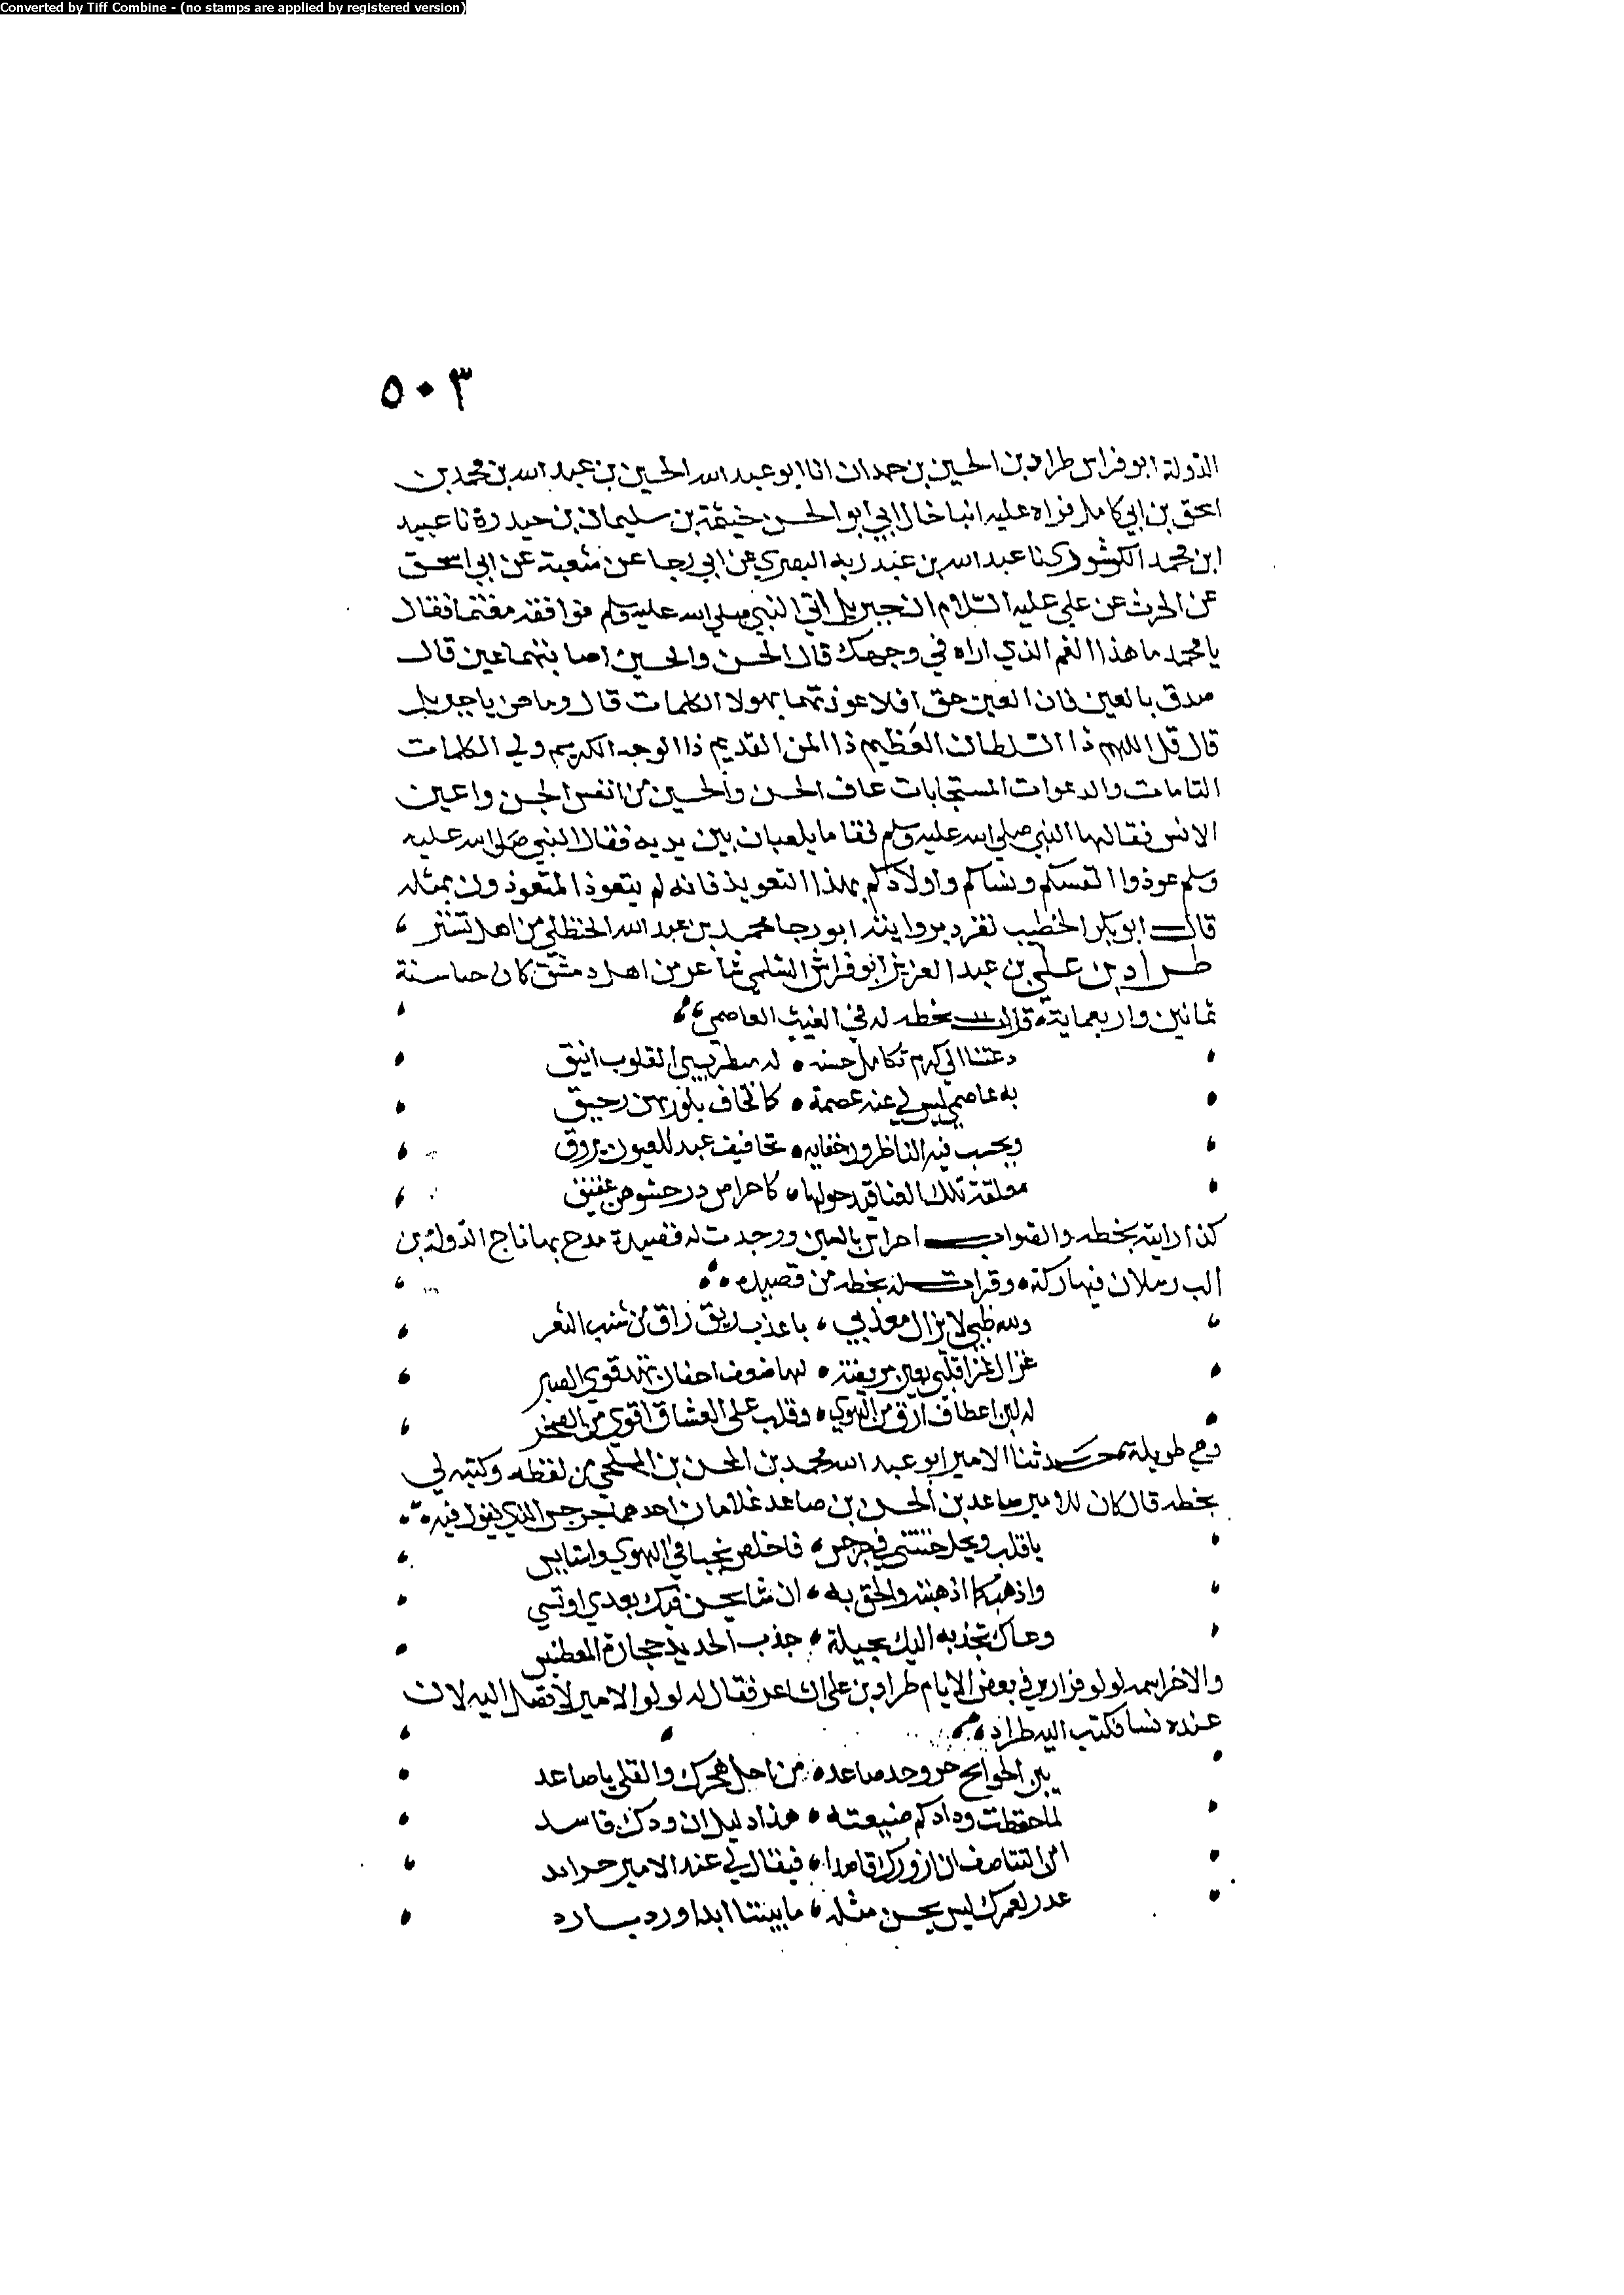 Converted by Tiff Combine - (no stamps are applied by registered version)
٥٠٣
الدولة ابو فراس طراد بن الحسين بن حمدان انا ابو عبد الله الحسين بن عبد الله بن محمد بن
اسحق بن ابي كامل قراه عليه انبا خال ابي ابو الحسن خيثمة بن سليمان بن حيدرة نا عبيد
ابن محمد الكشوري نا عبد الله بن عبد ربه البصري عن ابي رجا عن شعبة عن ابي اسحق
عن الحرث عن علي عليه السلام ان جبريل اتى النبي صلى الله عليه وسلم فوافقه مغتما فقال
يا محمد ما هذا الغم الذي اراه في وجهك قال الحسن والحسين اصابتهما عين قال
صدق بالعين فان العين حق افلا عوذتهما بهولا الكلمات قال وما هن يا جبريل
قال قل اللهم ذا السلطان العظيم ذا المن القديم ذا الوجه الكريم ولي الكلمات
التامات والدعوات المستجابات عاف الحسن والحسين من انفس الجن واعين
الانس فقالها النبي صلى الله عليه وسلم فقاما يلعبان بين يديه فقال النبي صلى الله عليه
وسلم عوذوا انفسكم ونساكم واولادكم بهذا التعويذ فانه لم يتعوذ المتعوذون بمثله
قال ابو بكر الخطيب تفرد بروايته ابو رجا محمد بن عبد الله الحنظلي من اهل تستر
طراد بن علي بن عبد العزيز ابو فراس السلمي شاعر من اهل دمشق كان حيا سنة
ثمانين واربعماية قرات بخطه له في العنب العاصمي
دعتنا الى كرم تكامل حسنه له منظر يسبي القلوب انيق
به عاصمي ليس لي عنه عصمة كاقحاف بلور بهن رحيق
ويحسب فيه الناظرون خفايه تحافيف عبد للعيون يروق
معلقة تلك العناقيد حولها كاحراص در حشوهن عقيق
كذا رايته بخطه والصواب احراس بالسين ووجدت له قصيدة مدح بها تاج الدولة بن
الب رسلان فيها ركة وقرات له بخطه من قصيدة
ولله ظبي لا يزال معذبي باعذب ريق راق من شنب الثغر
غزال غزا قلبي بعين مريضة لها ضعف اجفان تهد قوى الصبر
له لين اعطاف ارق من الهوى وقلب على العشاق اقوى من الصخر
وهي طويلة حدثنا الامير ابو عبد الله محمد بن المحسن بن الملحي من لفظه وكتبه لي
بخطه قال كان للامير صاعد بن الحسن بن صاعد غلامان احدهما جرجس الذي يقول فيه
يا قلب ويحك خنتني في جرجس فاخلص نجيا في الهوى واستايس
واذهب كما اذهبته والحق به ان شا يحسن فيك بعدي او يسي
وعساك تجذبه اليك بحيلة جذب الحديد حجارة المغطنيس
والاخر اسمه لولو فزاره في بعض الايام طراد بن علي الشاعر فقال له لولو الامير لا نصل اليه لان
عنده نسا فكتب اليه طراد
بين الجوانح حر وجد صاعد من اجل هجرك والقلى يا صاعد
لما حفظت ودادكم ضيعته هذا دليل ان ودك فاسد
امن التناصف ان ازورك قاصدا فيقال لي عند الامير خرايد
عذر لعمرك ليس يحسن مثله ما بيننا ابدا ورد بارد